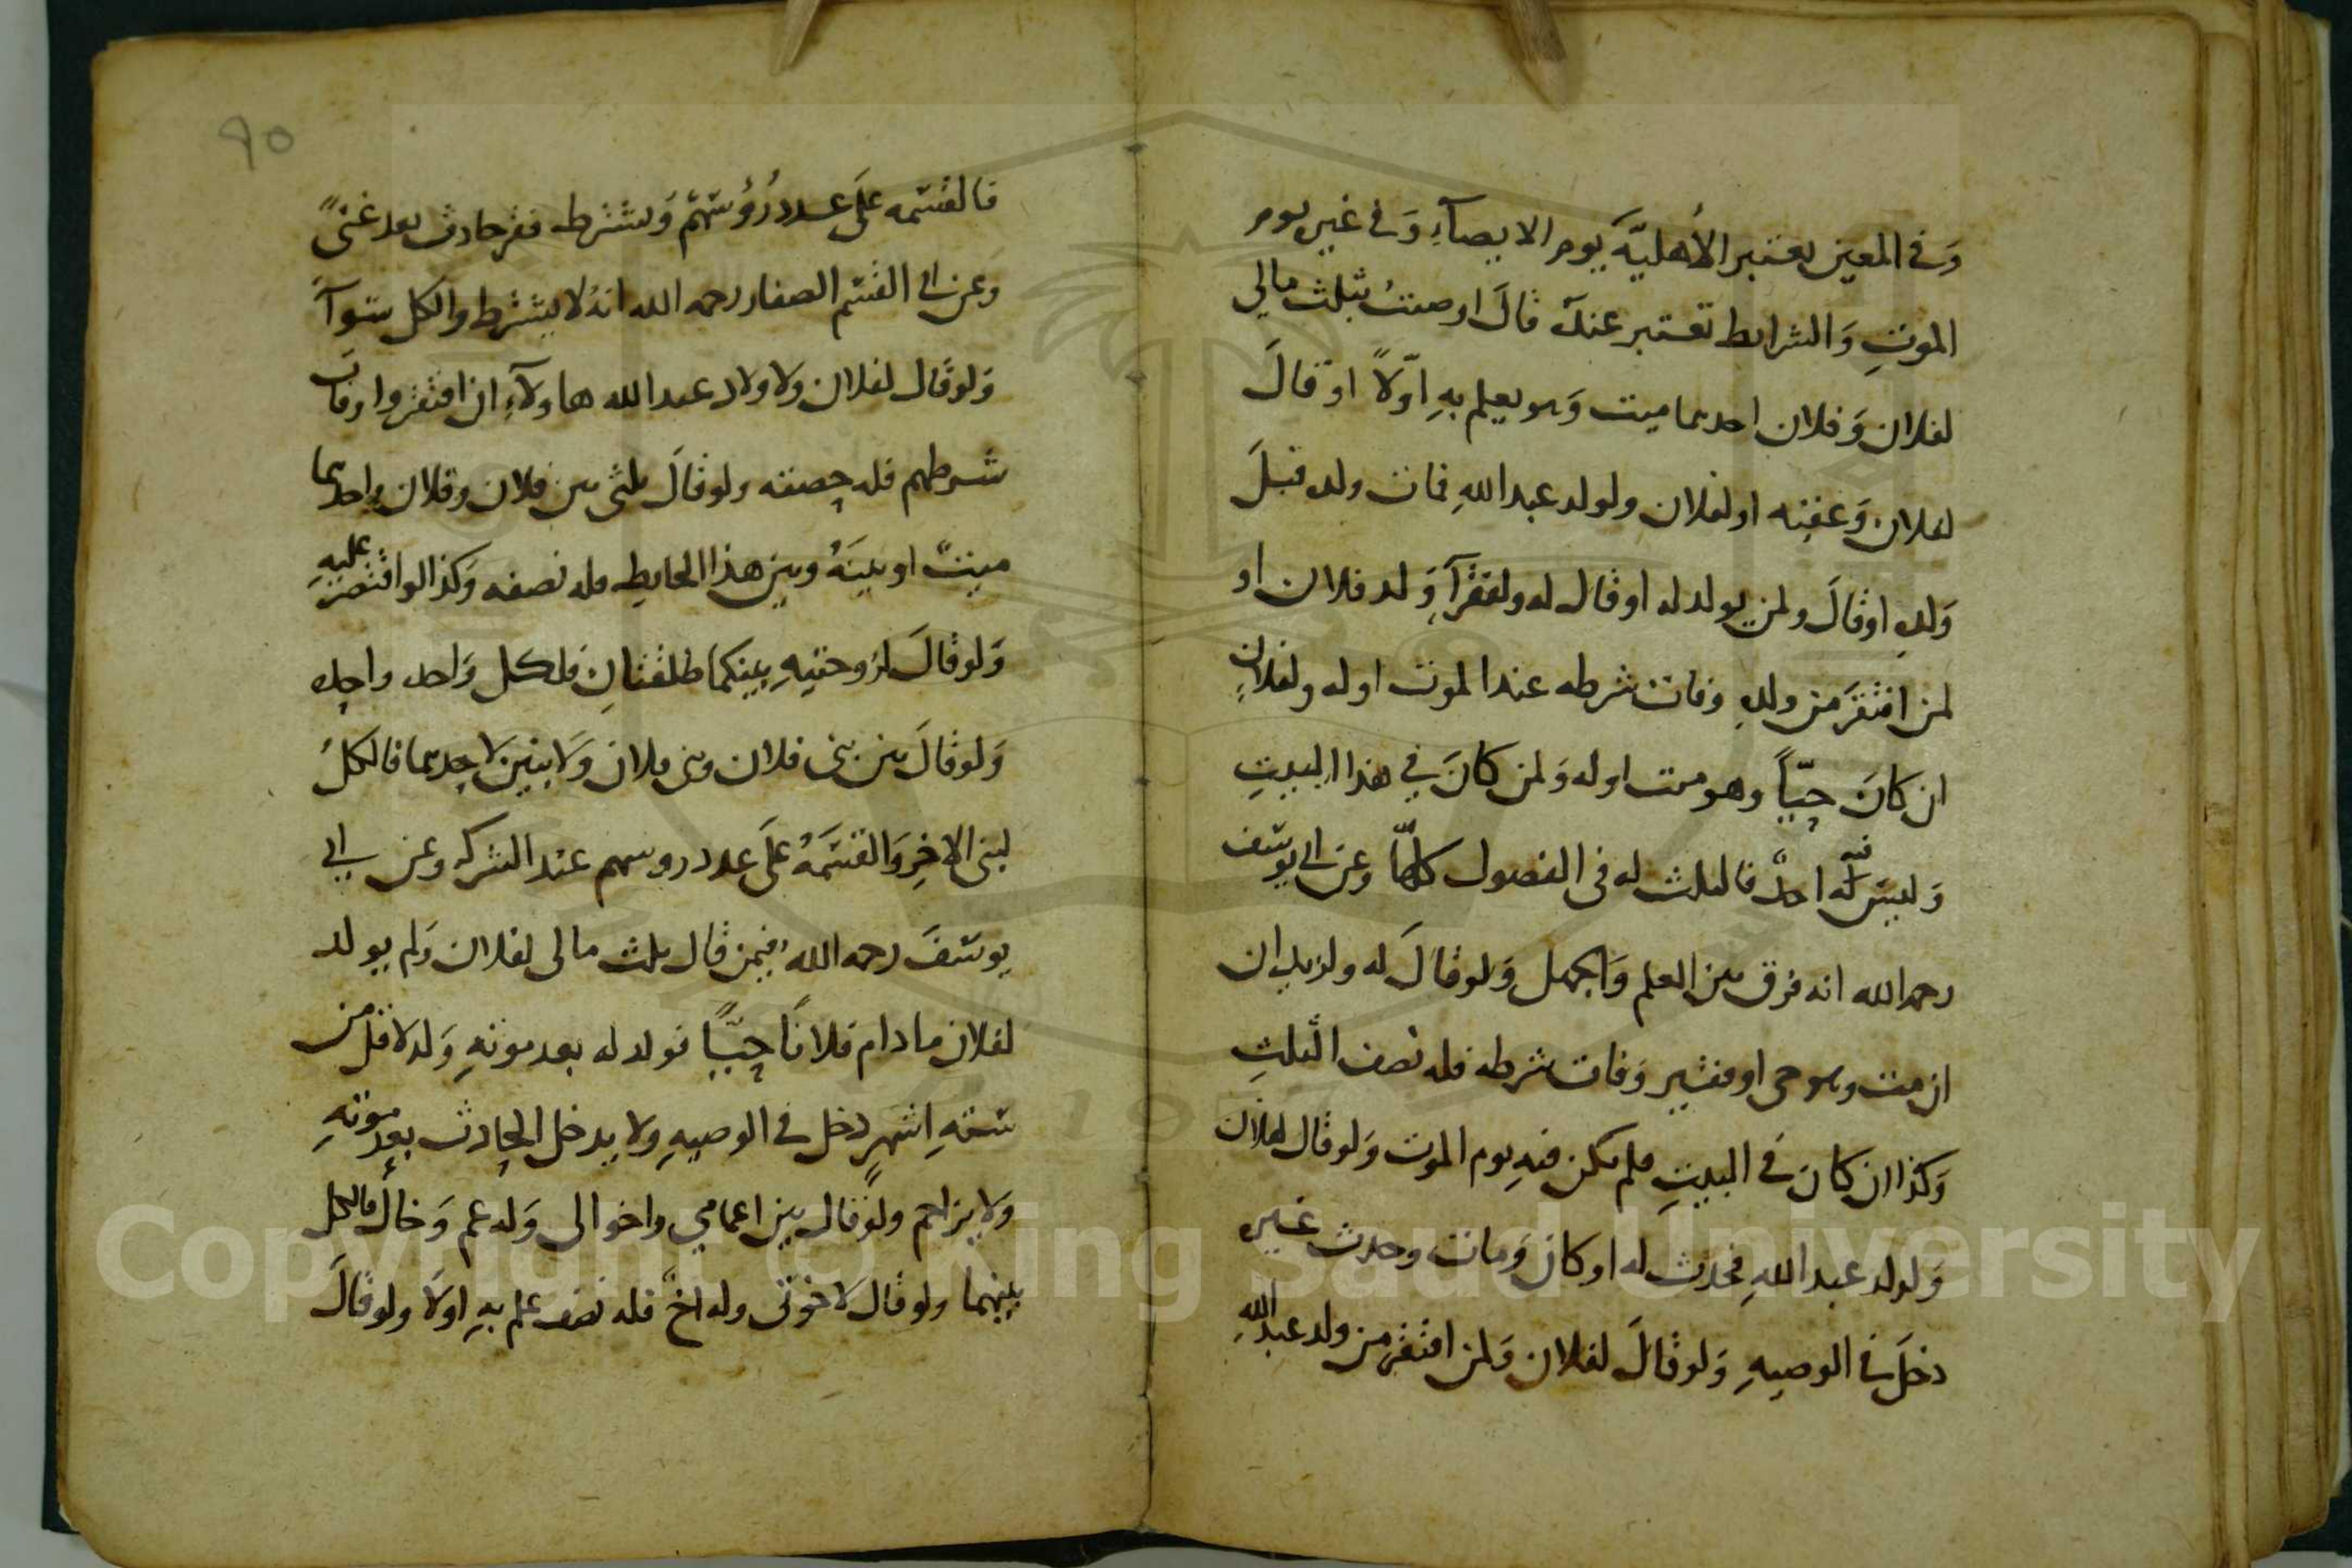 وَفي المعين يعتبر الأهليّة يوم الايصآءِ وَفي غير يوم
الموتِ وَالشرايط تعتبر عندَه قالَ اوصيتُ بثلث مالي
لفلان وَفلان احدهما ميت وَهو يعلم بهِ اوّلاً او قالَ
لفلان وَعقبه او لفلان ولولد عبد اللهِ فمات ولده قبلَ
وَلدِه او قالَ ولمن يولد له او قال له ولفقرآءِ وَلد فلان او
لمن افتقرَ من ولدِه وفات شرطه عند الموت او له ولفلانٍ
ان كانَ حيّاً وهو ميت او له وَلمن كانَ في هذا البيتِ
وَليسَ فيه احدٌ فالثلث له في الفصول كلّها وعن ابي يوسف
رحمه الله انه فرق بين العلم وَالجهل وَلو قالَ له ولزيد ان
ان مت وهو حي او فقير وَفات شرطه فله نصف الثلثِ
وَكذا ان كان في البيتِ فلم يكن فيهِ يوم الموت وَلو قال لفلان
وَلولد عبد اللهِ فحدث له او كان وَمات وحدث غيره
دخلَ في الوصيهِ وَلو قالَ لفلان وَلمن افتقر من ولد عبد اللهِ
٩٥
فالقسمه علَى عدد رُؤُسهم وَيشترط فقر حادث بعد غنًى
وَعن ابي القسم الصفار رحمه الله انهُ لا يشترط والكل سوآءً
وَلو قال لفلان ولاولاد عبد الله هاولآءِ ان افتقروا وفات
شرطهم فله حصته ولو قالَ ثلثي بين فلان وفلان واحدهما
ميتٌ او بينَهُ وبين هذا الحايط فله نصفه وَكذا لو اقتصر عليهِ
وَلو قالَ لزوجتيهِ بينكما طلقتانِ فلكل وَاحده واحده
وَلو قالَ بين بني فلان وبني فلان وَلا بنين لاحدهما فالكلُ
لبني الاخرِ وَالقسمَةُ علَى عدد روسهم عند الشركه وعن ابي
يوسفَ رحمه الله فيمن قال ثلث مالى لفلان وَلم يولد
لفلان ما دام فلاناً حيّاً فولد له بعد موتهِ وَلد لاقل من
ستةِ اشهرٍ دخل في الوصيهِ ولا يدخل الحادث بعد موتهِ
وَلا يزاحم ولو قال بين اعمامي واخوالى وَله عم وَخال فالكل
بينهما ولو قال لاخوتى وله اخٌ فله نصف علم بهِ اولَا ولو قالَ
Copyright © King Saud University